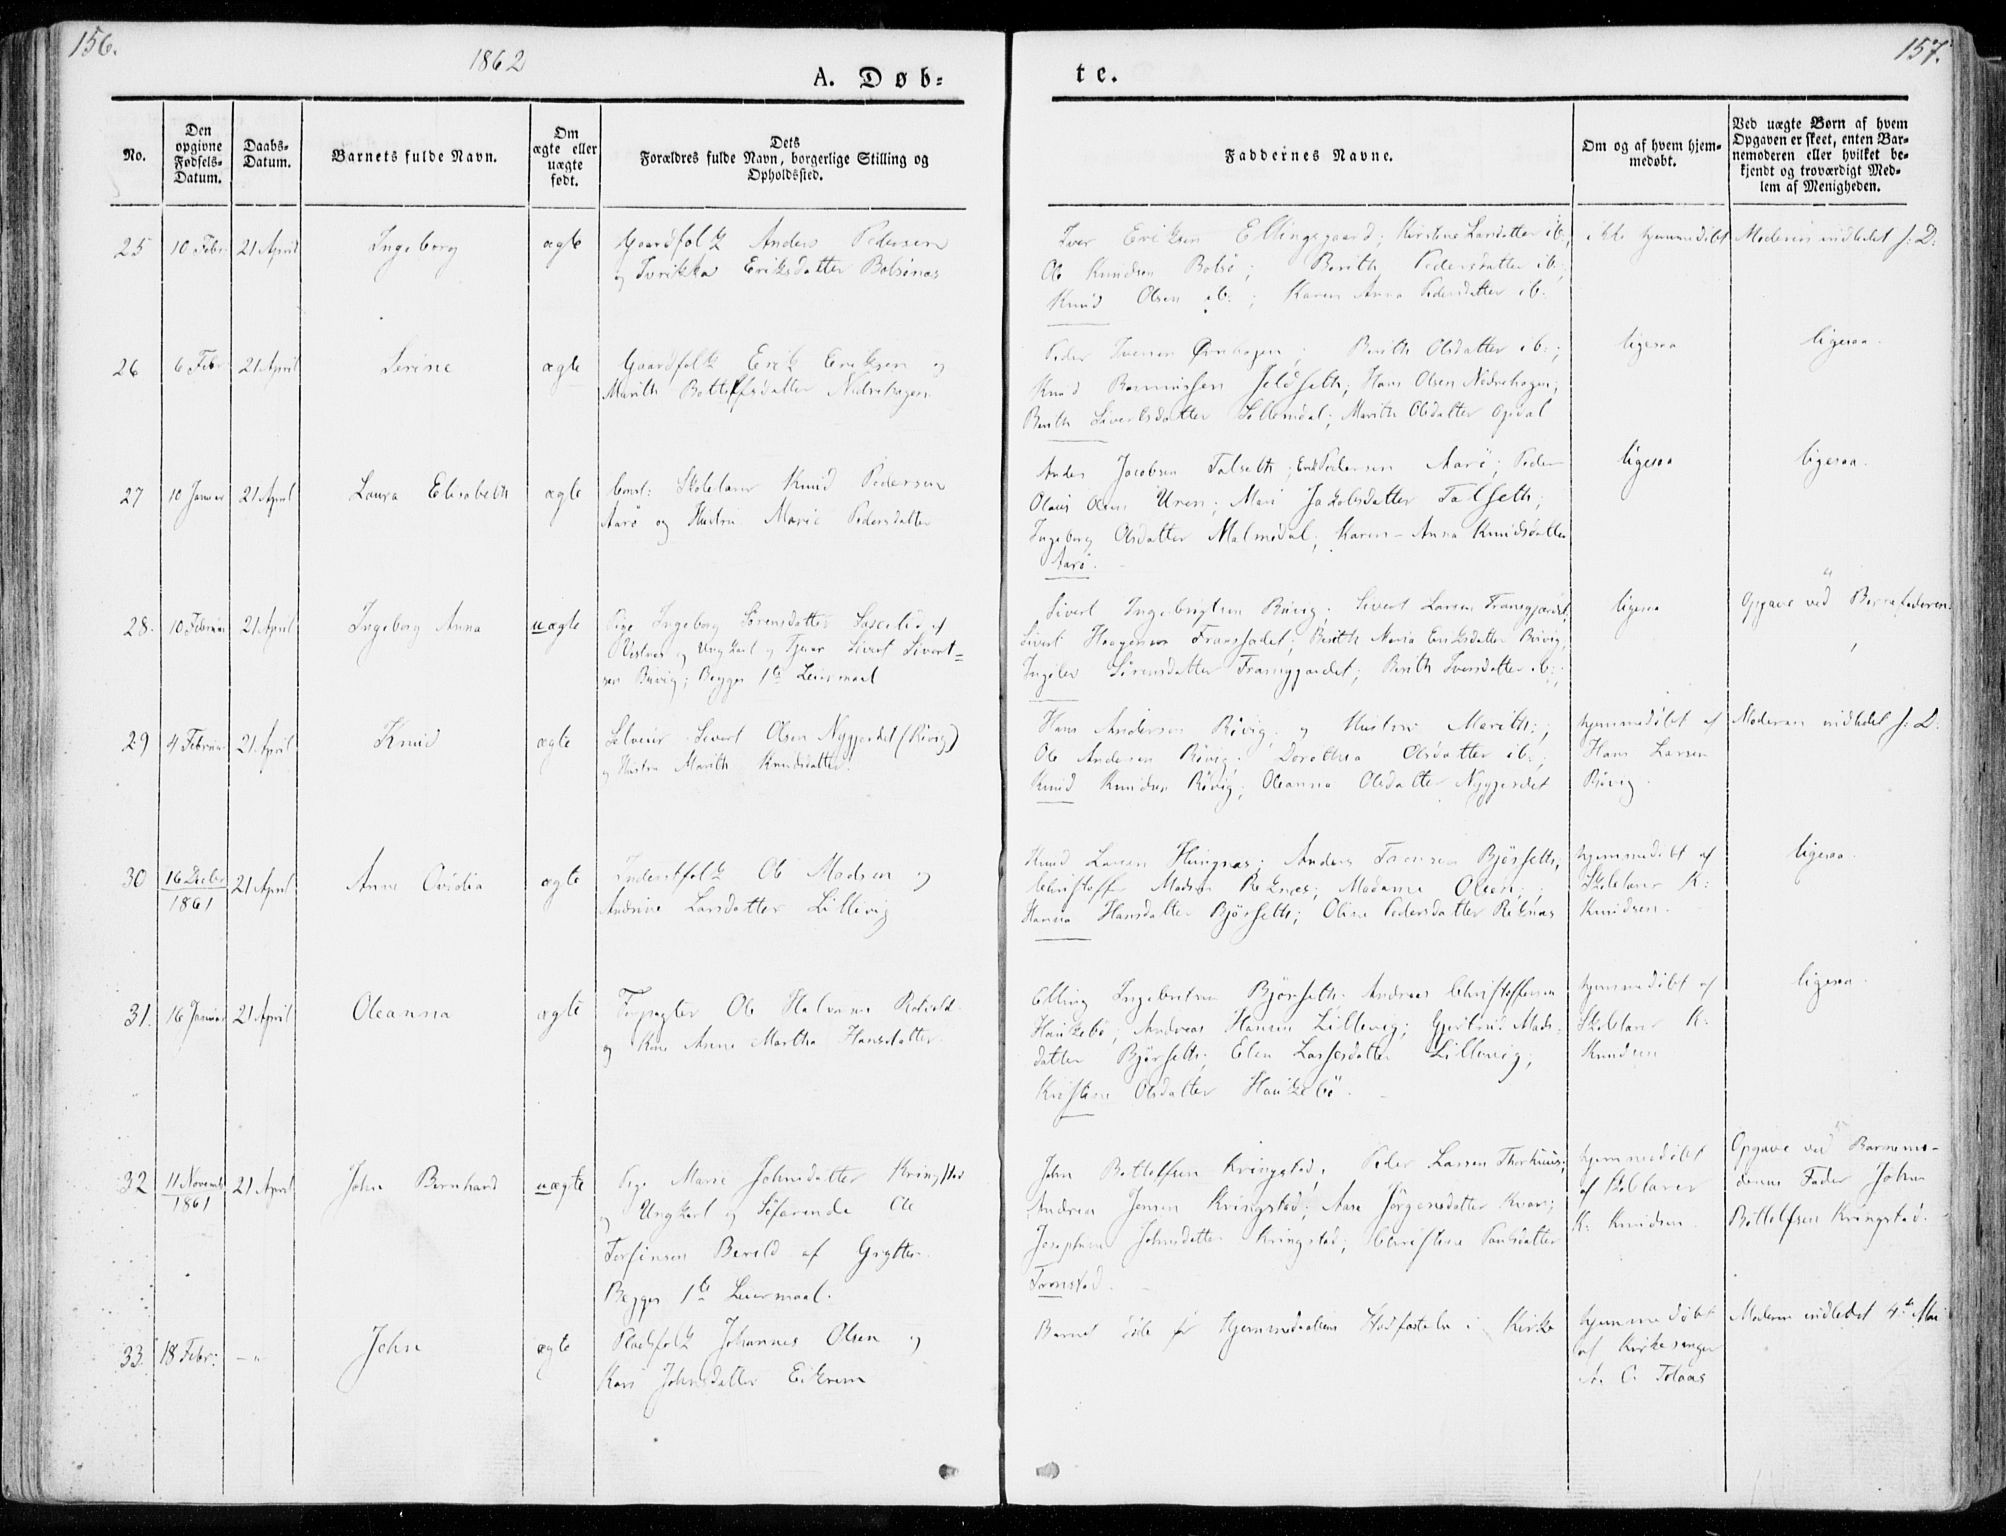 156.
1862
A. Døb=
te.
157.
No.
Den
opgivne
Fødsels-
Datum.
Daabs-
Datum.
Barnets fulde Navn.
Om
ægte eller
uægte
født.
Dets
Forældres fulde Navn, borgerlige Stilling og
Opholdssted.
Faddernes Navne.
Om og af hvem hjem-
medøbt.
Ved uægte Børn af hvem
Opgaven er skeet, enten Bar-
nemoderen eller hvilket be-
kjendt og troværdigt Med-
lem af Menigheden.
25 10 Febr 21 April Ingeborg ægte Gaardfolk Anders Pedersen
og Eriksdatter Bolsønæs
Iver Eriksen Ellingsgaard; Kirstine Larsdatter ib:,
Ole Knudsen Bolsø; Berith Pedersdatter ib:,
Knud Olsen ib:; Karen Anna Pedersdatter ib:
ikke hjemmedöbt
Moderen indledet s: D:
26 6 Febr 21 April Serine ægte Gaardfolk Erik Eriksen og
Marith Bottolfsdatter Nedrehagen
Peder Iversen Øvrehagen; Berith Olsdatter ib:;
Knud Rasmussen Jeldseth; Hans Olsen Nedrehagen;
Berith Sivertsdatter Sollemdal; Marith Olsdatter Opdal
ligesaa
ligesaa.
27 10 Januar 21 April Laura Elisabeth ægte Const: Skolelærer Knud Pedersen
Aarö og Hustru Marie Pedersdatter
Anders Jacobsen Talseth; Erik Pedersen Aarö; Peder
Olaus Olsen Uren; Mari Jakobsdatter Talseth;
Ingeborg Olsdatter Malmedal; Karen-Anna Knudsdatter
Aarö.
ligesaa
ligesaa.
28. 10 Februar 21 April Ingeborg Anna uægte Pige Ingeborg Sörensdatter af
og Ungkarl og Tjener Sivert Sivert=
sen Rövig; Begges 1ste Leiermaal
Sivert Ingebrigtsen Rövig; Sivert Larsen Framgjærdet,
Sivert Haagensen; Berith Maria Eriksdatter Rövig;
Ingeborg Sörensdatter Framgjærdet; Berith Iversdatter ib:;
ligesaa
Opgave ved Barnefaderen
29 4 Februar 21 April Knud ægte Selveier Sivert Olsen Nygjerdet (Rövig)
og Hustru Marith Knudsdatter.
Hans Andersen Rövig, og Hustru Marith;,
Ole Andersen Rövig; Dorothea Olsdatter ib:;
Knud Knudsen Rövig; Oleanna Olsdatter Nygjerdet
hjemmedöbt af
Hans Larsen
Rövig.
Moderen indledet s: D:
30 16 Decbr
1861 21 April Anne Ovidia ægte Inderstfolk Ole Madsen og
Andrine Larsdatter Lillevig
Knud Larsen; Anders Bjørseth,
Christoffer Madsen Reknes; Madame Olsen;
Hanna Hansdatter Bjørseth; Oline Pedersdatter Reknæs
hjemmedöbt af
Skolelærer K:
Knudsen.
ligesaa.
31. 16 Januar 21 April Oleanna ægte Forpagter Ole Halvorsen
og Kone Anne Martha Hansdatter.
Elling Ingebretsen Bjørseth; Andreas Christoffersen
Haukebö; Andreas Hansen Lillevig; Gjertrud Mads-
datter Bjørseth; Elen Lassesdatter Lillevig;
Kristine Olsdatter Haukebö.
hjemmedöbt af
Skolelærer K:
Knudsen
ligesaa.
32 11 Novemb
1861 21 April John Bernhard uægte Pige Marie Johnsdatter Kringstad
og Ungkarl og Söfarende Ole
Torfinsen Berild af Grytten.
Begges 1ste Leiermaal.
John Bottolfsen Kringstad; Peder Larsen Thorhuus;
Andrea Jensen Kringstad; Aase Jörgensdatter;
Josephine Johnsdatter Kringstad; Christine Paulsdatter
Tonstad.
hjemmedöbt
af Skolelærer
K. Knudsen.
Opgave ved Barnemo-
derens Fader John
Bottolfsen Kringstad.
33. 18 Febr: -„ John ægte Pladsfolk Johannes Olsen og
Kari Johnsdatter Eikrem
Barnet döde för Hjemmedaabens Stadfæstelse i Kirke
hjemmedøbt
af Kirkesanger
C. Tolaas
Moderen indledet 4de Mai